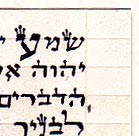 שמע
יהוה
הדברים
לבניך